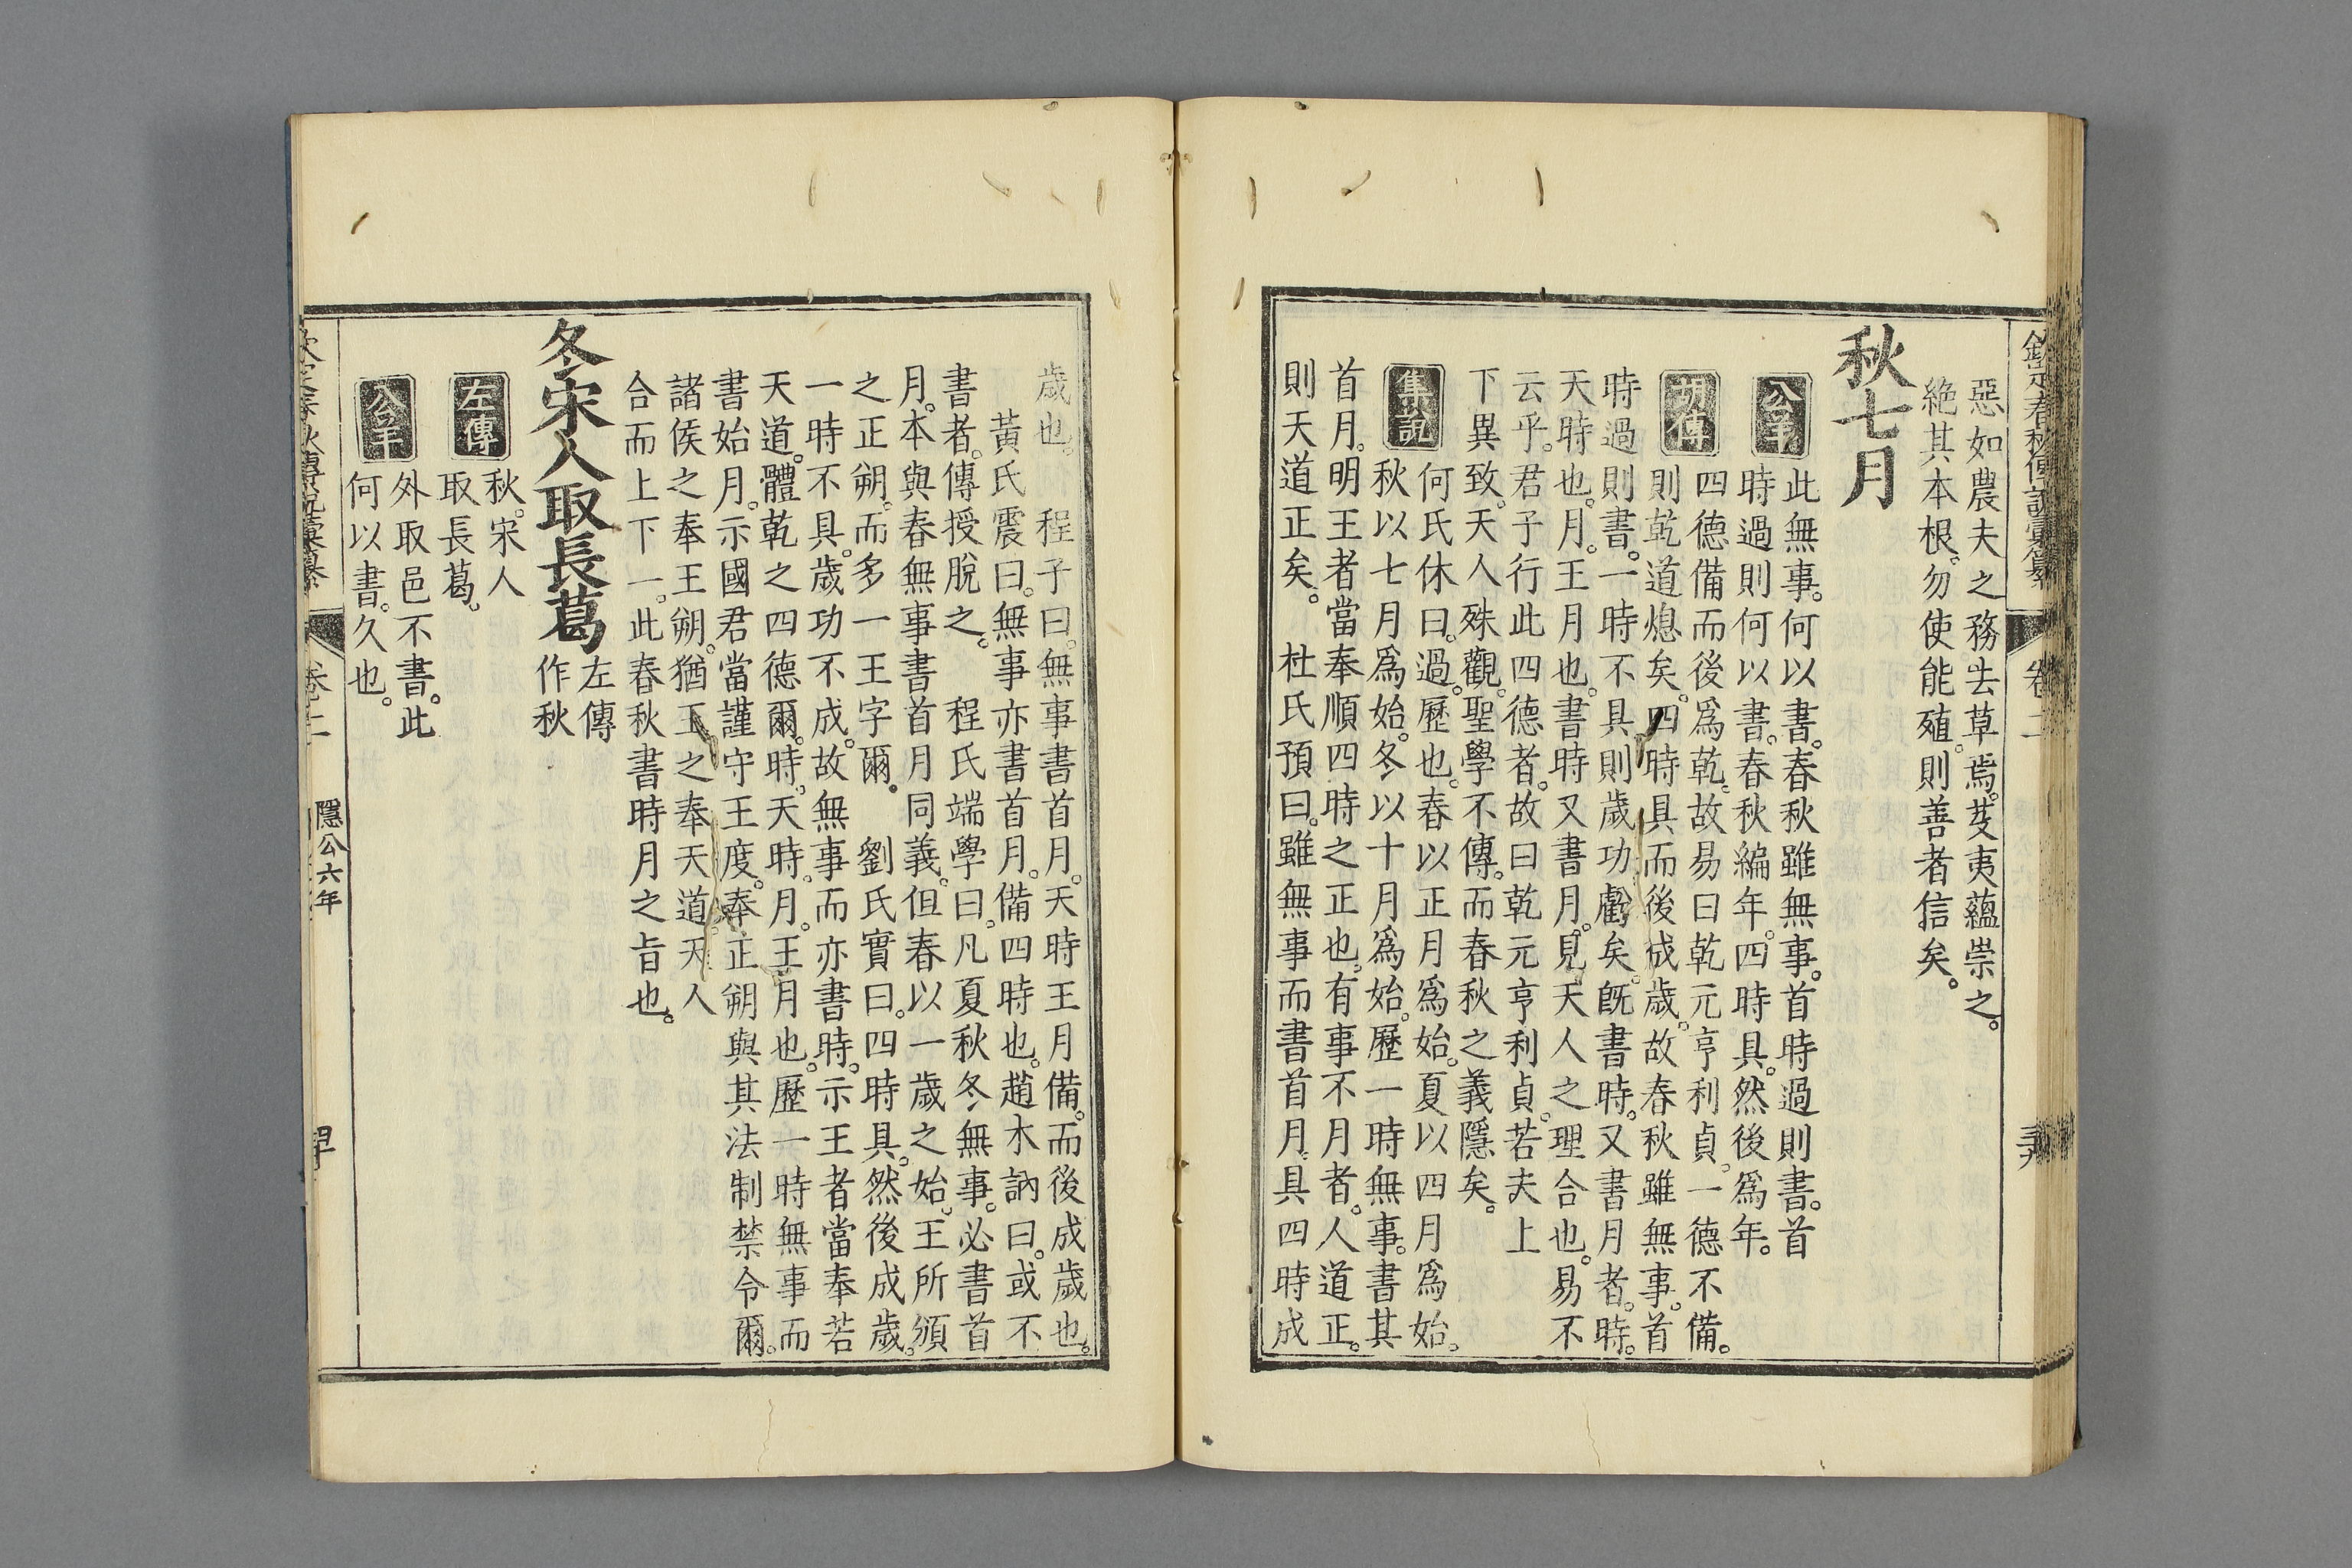 欽定春秋傳說彙纂 卷二 三九
惡如農夫之務去草焉。芟夷蘊崇之。
絶其本根。勿使能殖。則善者信矣。
秋七月
公羊 此無事。何以書。春秋雖無事。首時過則書。首
時過則何以書。春秋編年。四時具。然後爲年。
胡傳 四德備而後爲乾。故易曰乾元亨利貞。一德不備。
則乾道熄矣。四時具而後成歲。故春秋雖無事。首
時過則書。一時不具。則歲功虧矣。旣書時。又書月者。時。
天時也。月。王月也。書時又書月。見天人之理合也。易不
云乎。君子行此四德者。故曰乾元亨利貞。若夫上
下異致。天人殊觀。聖學不傳。而春秋之義隱矣。
集說 何氏休曰。過。歷也。春以正月爲始。夏以四月爲始。
秋以七月爲始。冬以十月爲始。歷一時無事。書其
首月。明王者當奉順四時之正也。有事不月者。人道正。
則天道正矣。 杜氏預曰。雖無事而書首月。具四時成
歲也。 程子曰。無事書首月。天時王月備。而後成歲也。
黃氏震曰。無事亦書首月。備四時也。趙木訥曰。或不
書者。傳授脫之。 程氏端學曰。凡夏秋冬無事。必書首
月。本與春無事書首月同義。但春以一歲之始。王所頒
之正朔。而多一王字爾。 劉氏實曰。四時具。然後成歲。
一時不具。歲功不成。故無事而亦書時。示王者當奉若
天道。體乾之四德爾。時。天時。月。王月也。歷一時無事而
書始月。示國君當謹守王度。奉正朔與其法制禁令爾。
諸侯之奉王朔。猶王之奉天道。天人
合而上下一。此春秋書時月之旨也。
冬宋人取長葛 左傳作秋
左傳 秋。宋人
取長葛。
公羊 外取邑不書。此
何以書。久也。
欽定春秋傳說彙纂 卷二 隱公六年 四十